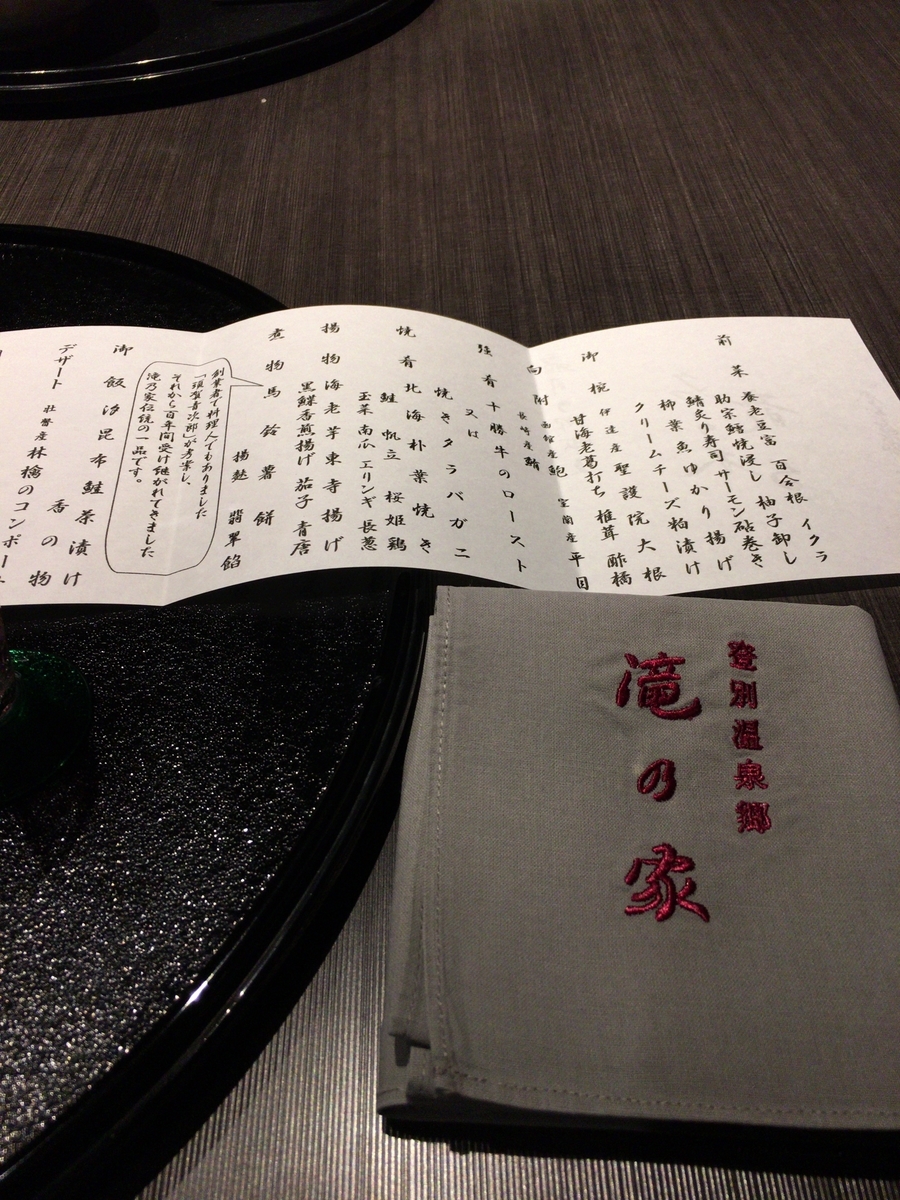 前菜
養老豆富 百合根 イクラ
助宗鱈焼浸し 柚子卸し
鯖炙り寿司 サーモン砧巻き
柳葉魚ゆかり揚げ
クリームチーズ粕漬け
御椀 伊達産聖護院大根
甘海老葛打ち 椎茸 酢橘
向附 函館産鮑 室蘭産平目
長崎産鮪
強肴 十勝牛のロースト
又は
焼きタラバガニ
焼肴 北海朴葉焼き
鮭 帆立 桜姫鶏
玉菜 南瓜 エリンギ 長葱
揚物 海老芋東寺揚げ
黒鰈香煎揚げ 茄子 青唐
煮物 馬鈴薯餅
揚麩 翡翠餡
創業者で料理人でもありました
「須賀音次郎」が考案し、
それから百年間受け継がれてきました
滝乃家伝統の一品です。
御飯 汐昆布鮭茶漬け
香の物
デザート 壮瞥産林檎のコンポート
登別温泉郷
滝の家